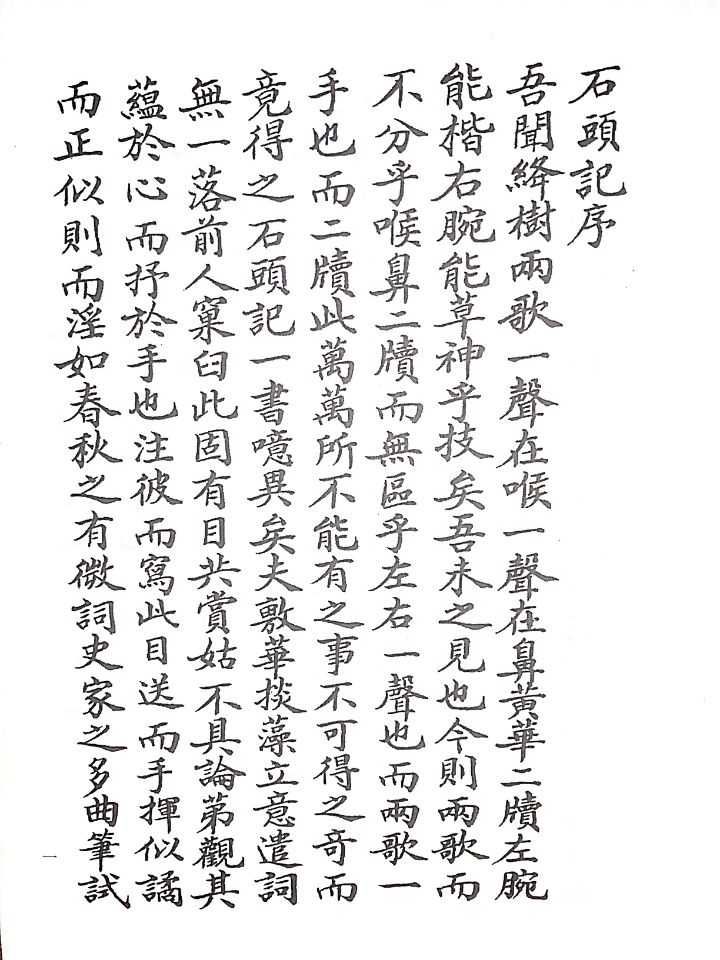 石頭記序
吾聞絳樹兩歌一聲在喉一聲在鼻黃華二牘左腕
能楷右腕能草神乎技矣吾未之見也今則兩歌而
不分乎喉鼻二牘而無區乎左右一聲也而兩歌一
手也而二牘此萬萬所不能有之事不可得之奇而
竟得之石頭記一書噫異矣夫敷華掞藻立意遣詞
無一落前人窠臼此固有目共賞姑不具論第觀其
蘊於心而抒於手也注彼而寫此目送而手揮似譎
而正似則而淫如春秋之有微詞史家之多曲筆試
一